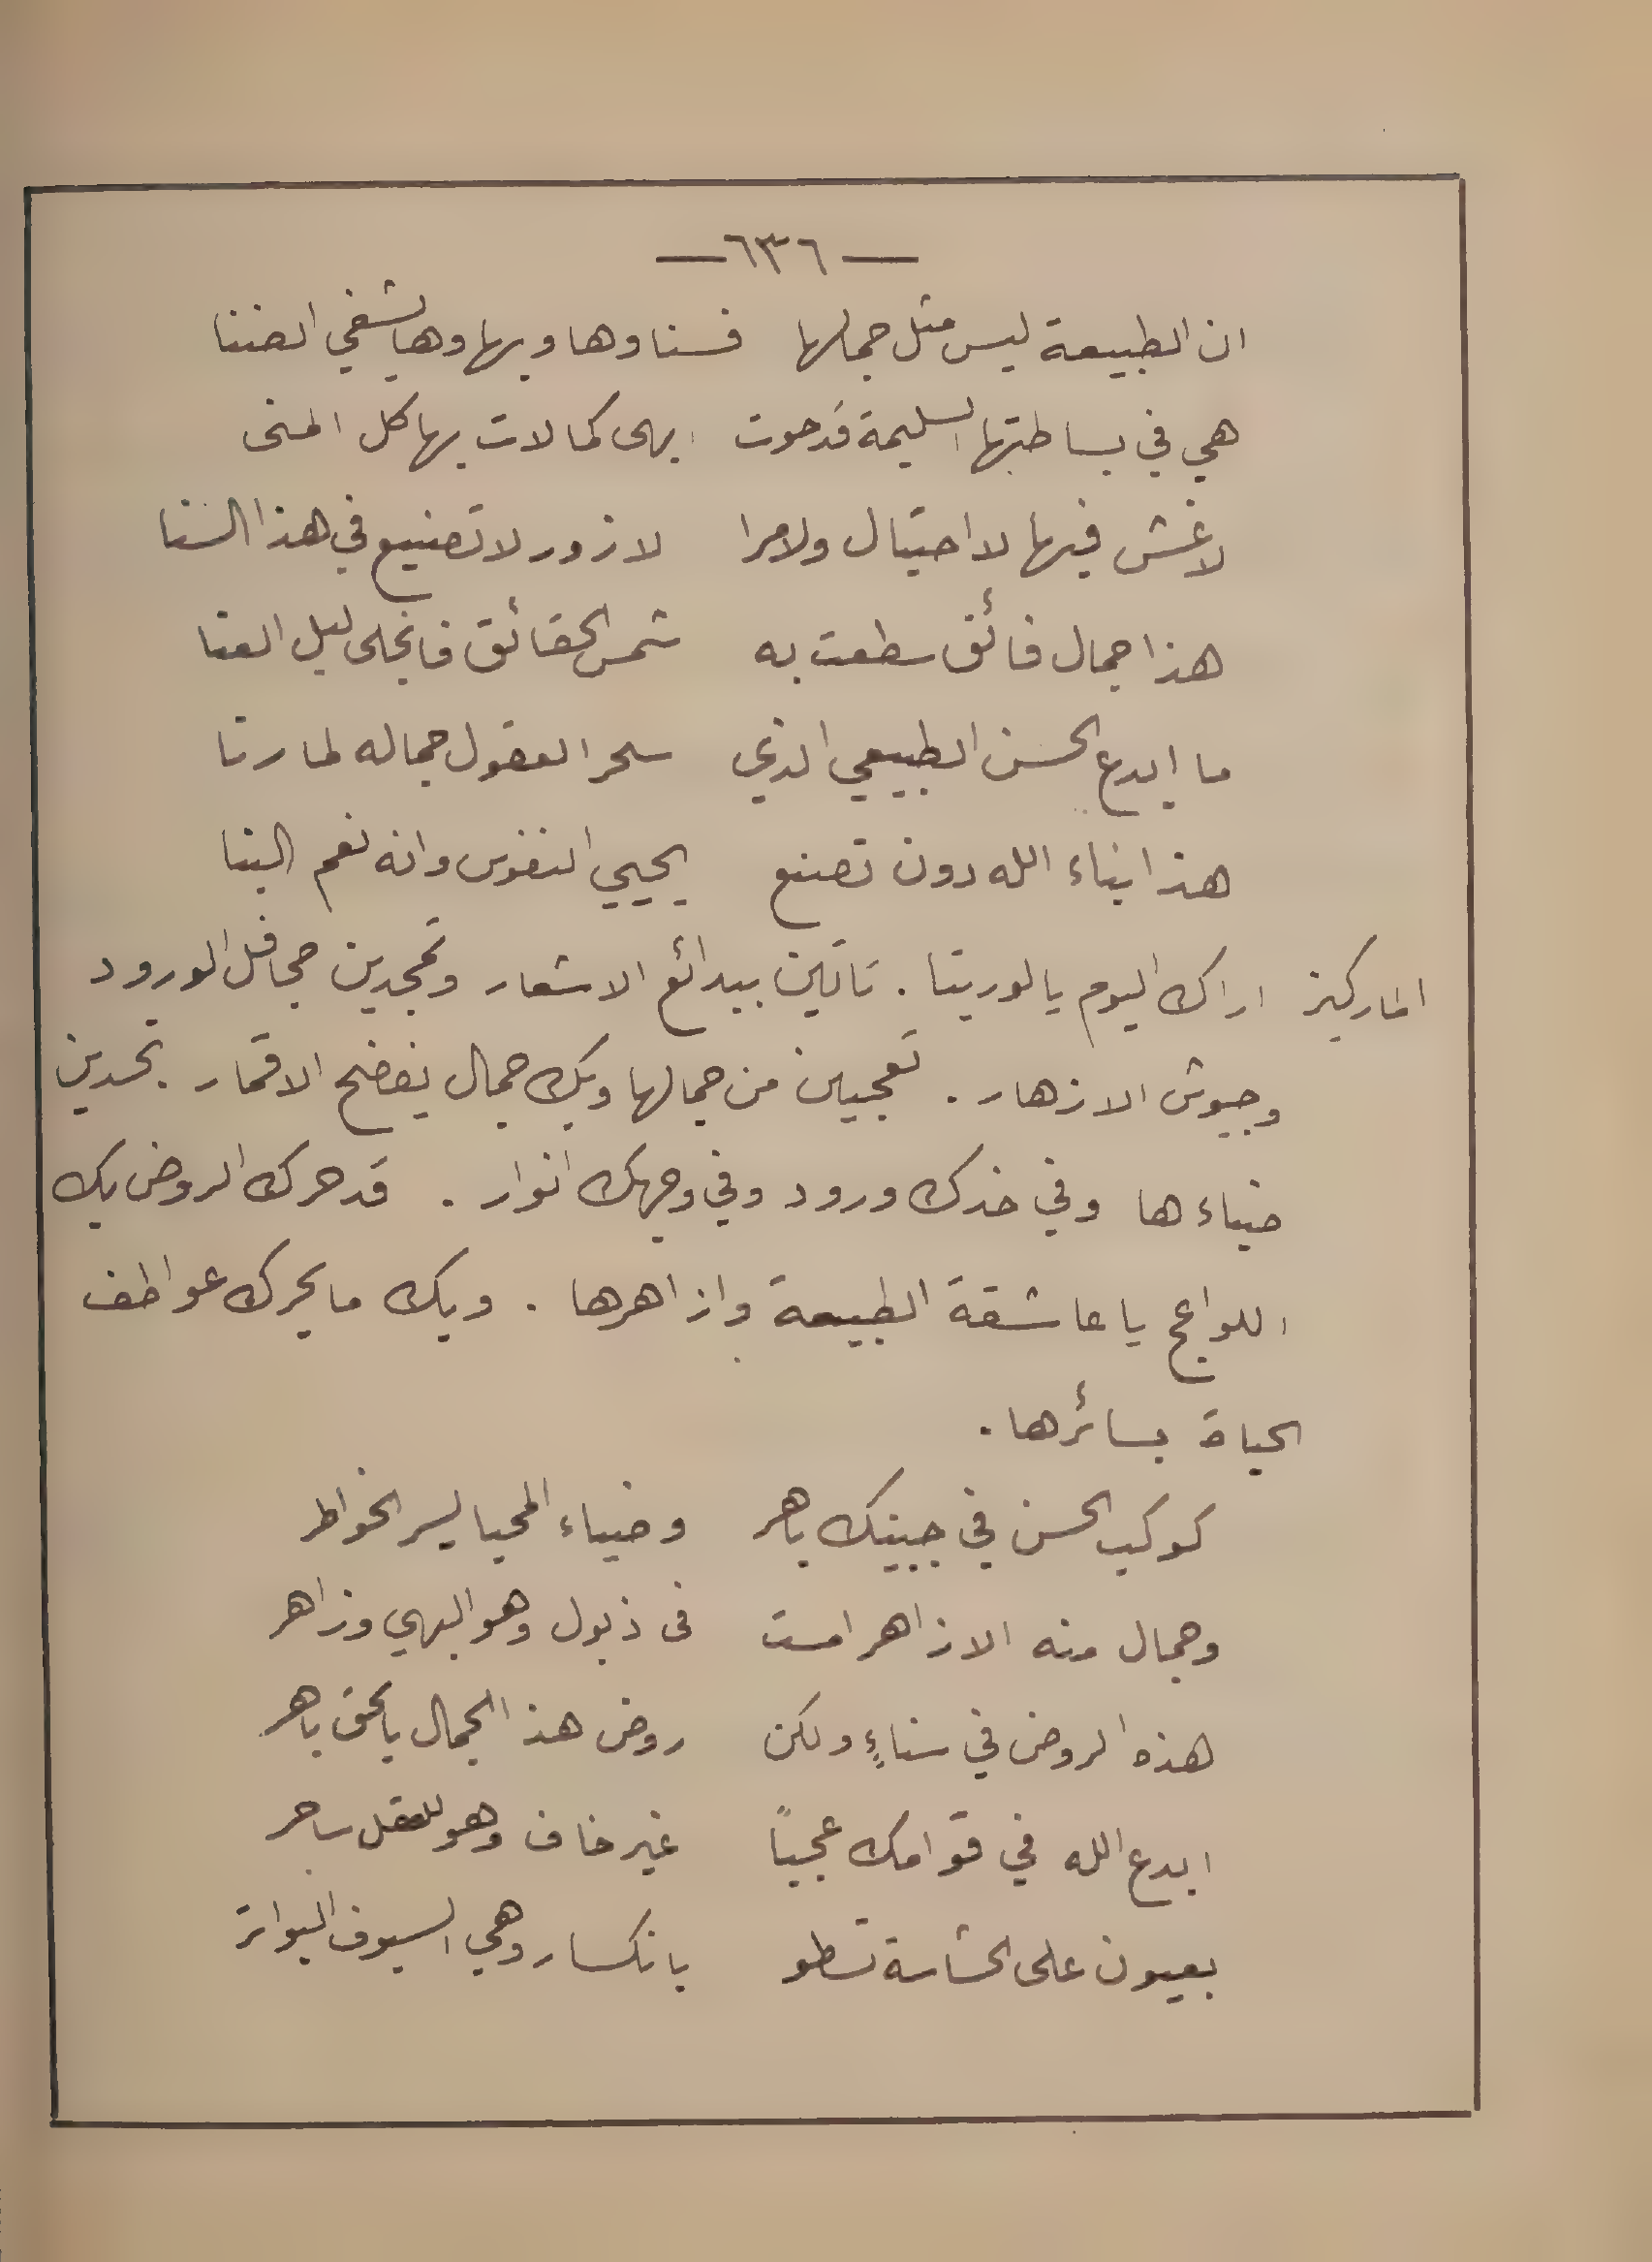 — ٦٣٦ —
ان الطبيعة ليس مثل جمالها فسناوها وبهاوها يشفي الضننا
هي في بساطتها السليمة قد حوت ابهى كمالات بها كل المنى
لا غش فيها لا احتيال ولا مرا لا زور لا تصنيع في هذا السنا
هذا جمال فائق سطعت به شمس الحقائق فانجلى ليل العنا
ما ابدع الحسن الطبيعي الذي سحر العقول جماله لما رنا
هذا بناء الله دون تصنع يحيي النفوس وانه نعم البنا
الماركيز اراك اليوم يا لوريتا . تاتين ببدائع الاشعار وتمجدين جحافل الورود
وجيوش الازهار . تعجبين من جمالها وبك جمال يفضح الاقمار . تحسدين
ضياءها وفي خدك ورود وفي وجهك انوار . قد حرك الروض بك
اللواعج يا عاشقة الطبيعة وازاهرها . وبك ما يحرك عواطف
الحياة بسائرها .
كوكب الحسن في جبينك باهر وضياء المحيا يسر الخواطر
وجمال منه الازاهر امست فى ذبول وهو البهي وزاهر
هذه الروض في سناءٍ ولكن روض هذا الجمال بالحق باهر
ابدع الله في قوامك عجباً غير خاف وهو للعقل ساحر
بعيون على الحشاسة تسطو بانكسار وهي السيوف البواتر